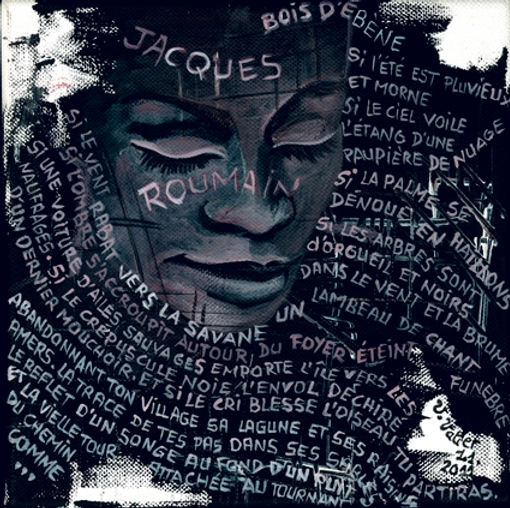 BOIS D'ÉBÈNE
JACQUES
ROUMAIN
SI L'ÉTÉ EST PLUVIEUX
ET MORNE
SI LE CIEL VOILE
L'ÉTANG D'UNE
PAUPIÈRE DE NUAGE
SI LA PALME SE
DÉNOUE EN HAILLONS
SI LES ARBRES SONT
D'ORGUEIL ET NOIRS
DANS LE VENT ET LA BRUME
SI LE VENT RABAT VERS LA SAVANE UN
LAMBEAU DE CHANT FUNÈBRE
SI L'OMBRE S'ACCROUPIT AUTOUR DU FOYER ÉTEINT
SI UNE VOITURE D'AILES SAUVAGES EMPORTE L'ÎLE VERS LES
NAUFRAGES. SI LE CRÉPUSCULE NOIE L'ENVOL DÉCHIRÉ
D'UN DERNIER MOUCHOIR ET SI LE CRI BLESSE L'OISEAU
TU PARTIRAS.
ABANDONNANT TON VILLAGE SA LAGUNE ET SES
AMERS, LA TRACE DE TES PAS DANS SES
LE REFLET D'UN SONGE AU FOND D'UN PUIT
ET LA VIEILLE TOUR ATTACHÉE AU TOURNANT
DU CHEMIN
COMME
,,,